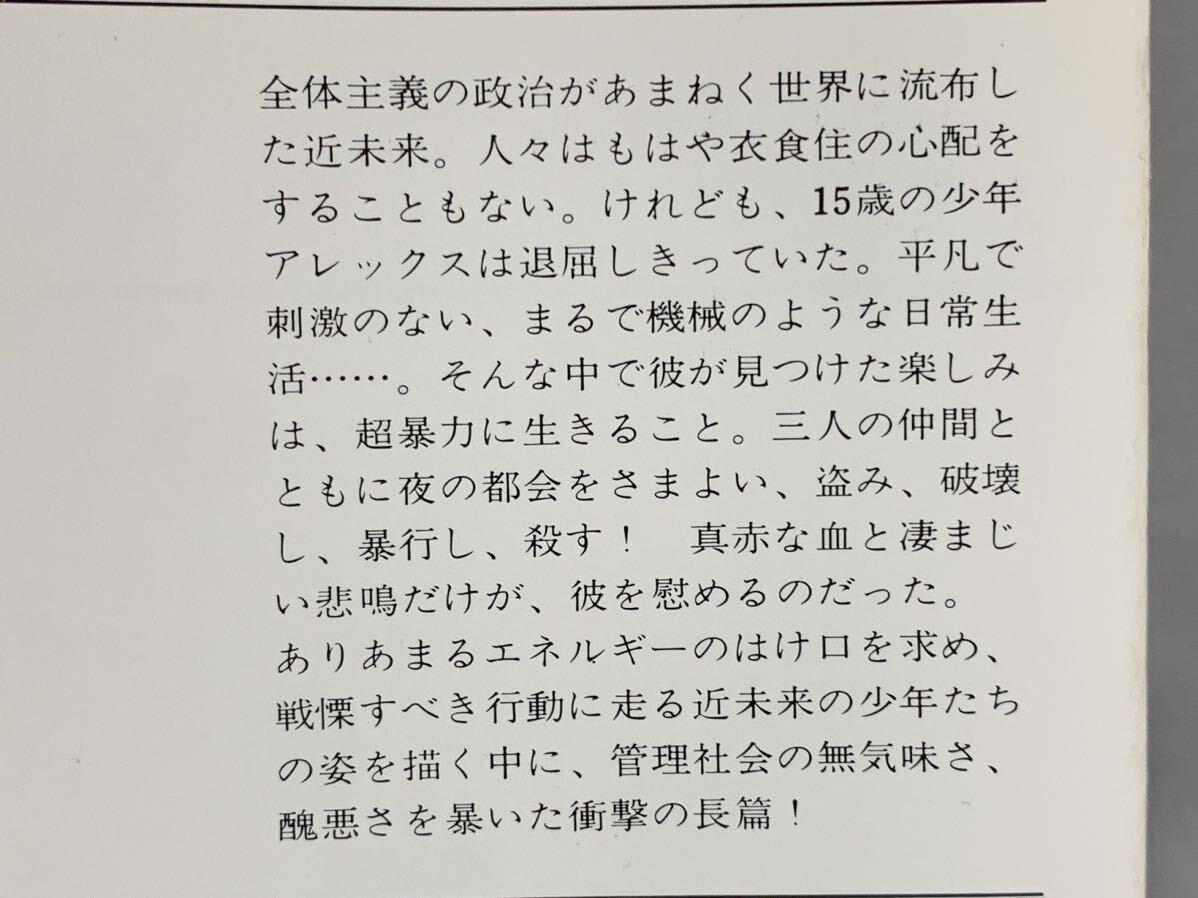 全体主義の政治があまねく世界に流布し
た近未来。人々はもはや衣食住の心配を
することもない。けれども、15歳の少年
アレックスは退屈しきっていた。平凡で
刺激のない、まるで機械のような日常生
活……。そんな中で彼が見つけた楽しみ
は、超暴力に生きること。三人の仲間と
ともに夜の都会をさまよい、盗み、破壊
し、暴行し、殺す！　真赤な血と凄まじ
い悲鳴だけが、彼を慰めるのだった。
ありあまるエネルギーのはけ口を求め、
戦慄すべき行動に走る近未来の少年たち
の姿を描く中に、管理社会の無気味さ、
醜悪さを暴いた衝撃の長篇！